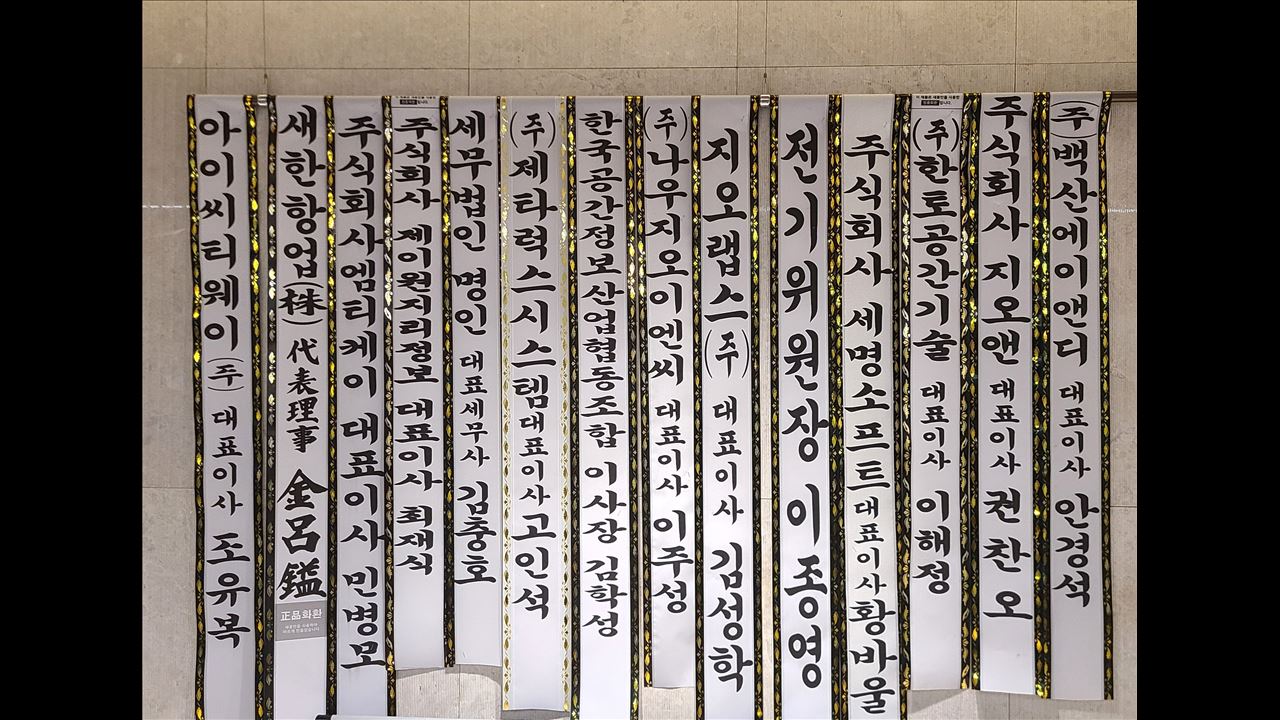 아이씨티웨이(주) 대표이사 조유복
새한항업(株) 代表理事 金呂鎰
正品화환
주식회사엠티케이 대표이사 민병모
주식회사 제이원지리정보 대표이사 최재식
세무법인 명인 대표세무사 김충호
(주)제타럭스시스템대표이사고인석
한국공간정보산업협동조합 이사장 김학성
(주)나우지오이엔씨 대표이사 이주성
지오랩스(주) 대표이사 김성학
전기위원장 이종영
주식회사 세명소프트대표이사황바울
(주)한토공간기술 대표이사 이해정
주식회사 지오앤 대표이사 권찬오
(주)백산에이앤디 대표이사 안경석